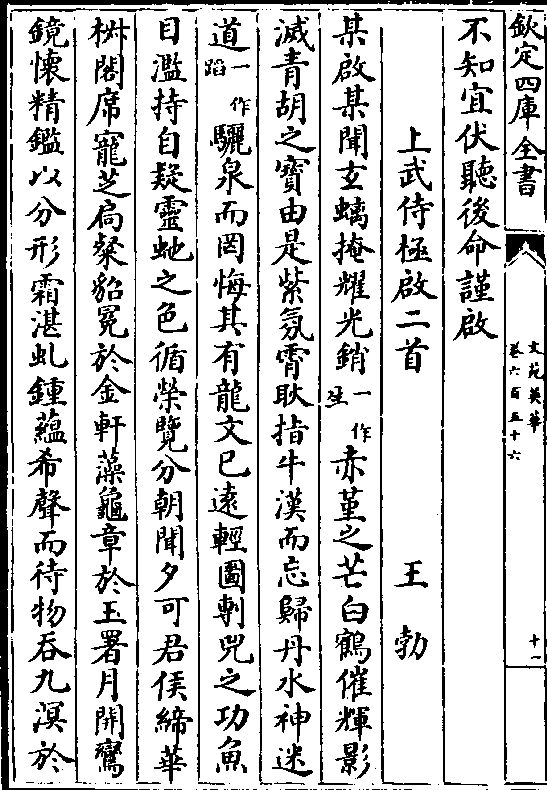 欽定四庫全書
文苑英華
卷六百五十六
十一
不知宜伏聽後命謹啟
上武侍極啟二首 王勃
某啟某聞玄螭掩耀光銷一作赤堇之芒白鶴催輝影
滅青胡之寶由是紫氛霄耿指牛漢而忘歸丹水神迷
道一作蹈驪泉而罔悔其有龍文已遠輕圖剸兕之功魚
目濫持自疑靈虵之色循榮覽分朝聞夕可君侯締華
椒閣席寵芝扃粲貂冕於金軒藻龜章於玉署月開鸞
鏡懷精鑑以分形霜湛虬鍾蘊希聲而待物吞九溟於